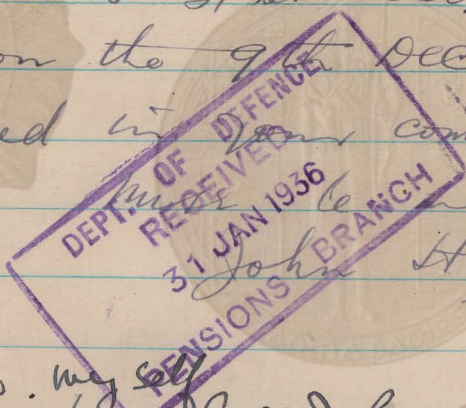 on the 9th Dec
ed in your com
DEPT. OF DEFENCE
RECEIVED
31 JAN 1936
PENSIONS BRANCH
John H
myself